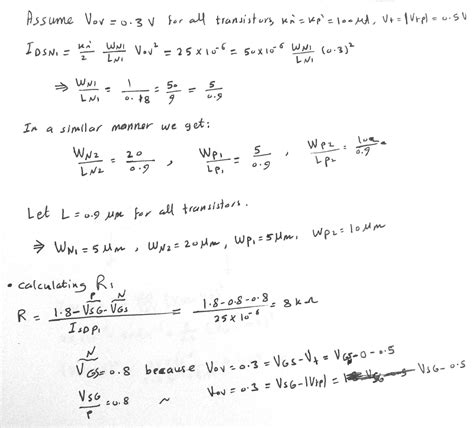 Assume Vov = 0.3 V for all transistors, kn' = kp' = 100 μA, Vt = |Vtp| = 0.5V
IDSN1 = kn'/2 WN1/LN1 Vov² = 25×10⁻⁶ = 50×10⁻⁶ WN1/LN1 (0.3)²
⇒ WN1/LN1 = 1/0.18 = 50/9 = 5/0.9
In a similar manner we get:
WN2/LN2 = 20/0.9 , WP1/LP1 = 5/0.9 , WP2/LP2 = /0.9
Let L = 0.9 μm for all transistors.
⇒ WN1 = 5 μm, WN2 = 20 μm, WP1 = 5 μm, WP2 = 10 μm
• calculating R1
P N
R = 1.8 - VSG - VGS / ISDP1 = 1.8 - 0.8 - 0.8 / 25×10⁻⁶ = 8 kΩ
N
VGS = 0.8 because Vov = 0.3 = VGS - Vt = VGS - 0.5
VSG = 0.8 ~ Vov = 0.3 = VSG - |Vtp| = VSG - 0.5
P